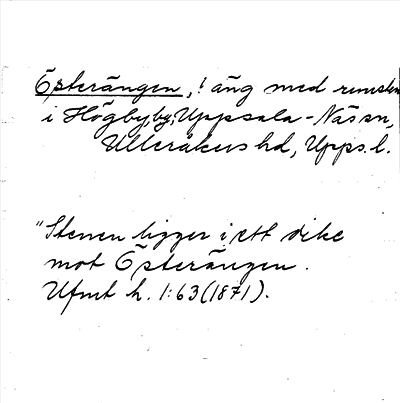 Österängen, ! äng med runsten
i Högby by, Uppsala-Näs sn,
Ulleråkers hd, Upps. l.
"Stenen ligger i ett dike
mot Österängen.
Ufmt h. 1:63 (1871).